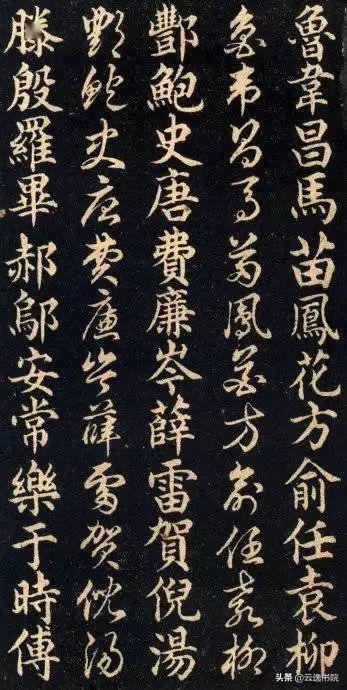 魯韋昌馬苗鳳花方俞任袁柳
魯韋昌馬苗鳳花方俞任袁柳
酆鮑史唐費廉岑薛雷賀倪湯
酆鮑史唐費廉岑薛雷賀倪湯
滕殷羅畢郝鄔安常樂于時傅
头条 @云逸书院